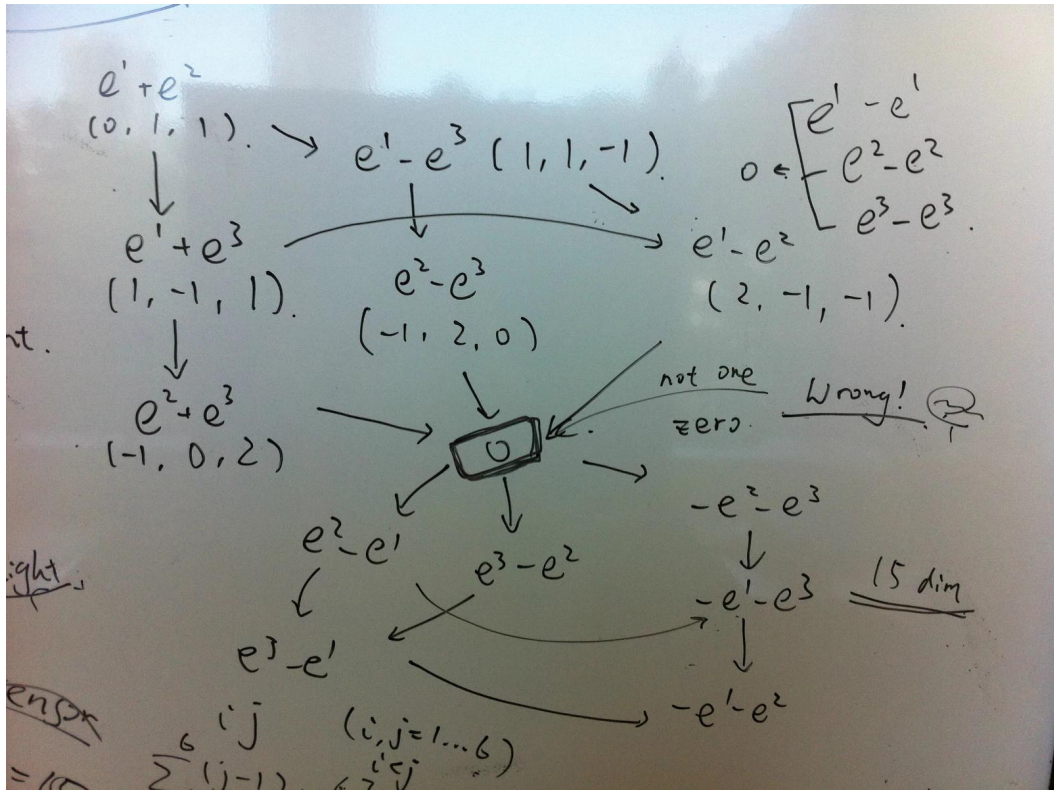 e¹+e²
(0, 1, 1).
e¹-e³ (1, 1, -1).
e¹-e¹
0 ← e²-e²
e³-e³.
e¹+e³
(1, -1, 1).
e²-e³
(-1, 2, 0)
e¹-e²
(2, -1, -1).
nt.
e²+e³
(-1, 0, 2)
not one
zero.
Wrong!
0
-e²-e³
e²-e¹
e³-e²
ight
-e¹-e³
15 dim
e³-e¹
-e¹-e²
ensor
ij (i,j=1...6)
i<j